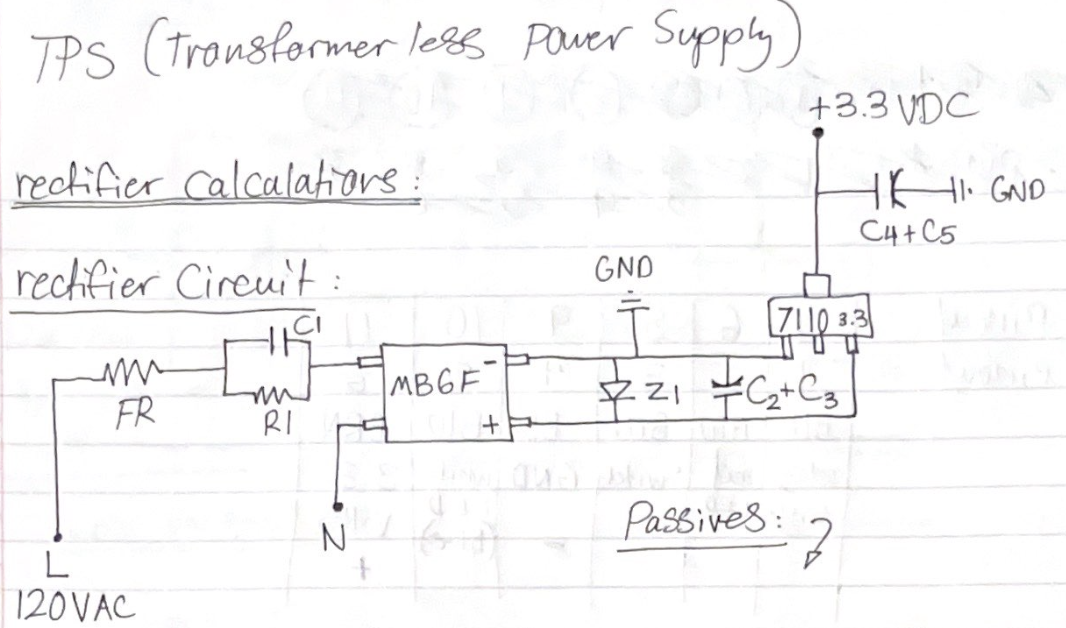 TPS (Transformer less Power Supply)
+3.3 VDC
rectifier Calculations:
GND
C4+C5
rectifier Circuit:
GND
C1
7110 3.3
MB6F
-
Z1
C2+C3
FR
R1
+
N
Passives:
L
120VAC